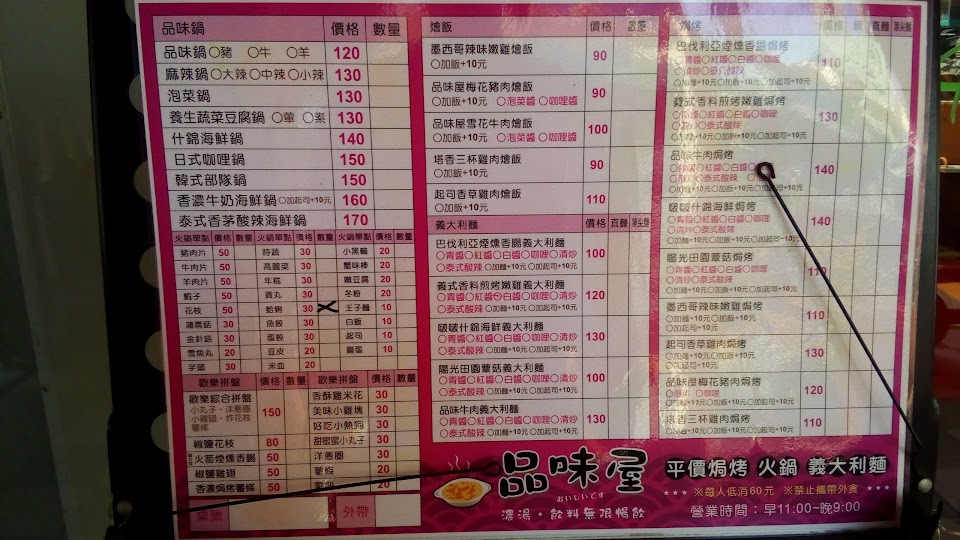 品味鍋 價格 數量
品味鍋○豬 ○牛 ○羊 120
麻辣鍋○大辣○中辣○小辣 130
泡菜鍋 130
養生蔬菜豆腐鍋 ○葷 ○素 130
什錦海鮮鍋 140
日式咖哩鍋 150
韓式部隊鍋 150
香濃牛奶海鮮鍋○加起司+10元 160
泰式香茅酸辣海鮮鍋 170
火鍋單點 價格 數量 火鍋單點 價格 數量 火鍋單點 價格 數量
豬肉片 50 時蔬 30 小黑輪 20
牛肉片 50 高麗菜 30 蟹味棒 20
羊肉片 50 年糕 30 嫩豆腐 20
蝦子 50 貢丸 30 冬粉 20
花枝 50 蛤蜊 30 王子麵 10
鴻喜菇 30 魚餃 30 白飯 10
金針菇 30 蛋餃 30 起司 10
雪魚丸 20 豆皮 20 雞蛋 10
芋頭 30 米血 20
歡樂拼盤 價格 數量 歡樂拼盤 價格 數量
歡樂綜合拼盤 150 香酥雞米花 30
小丸子、洋蔥圈
小雞塊、炸花枝
薯條
美味小雞塊 30
好吃小熱狗 30
椒鹽花枝 80 甜蜜蜜小丸子 30
火箭煙燻香腸 50 洋蔥圈 30
椒鹽雞翅 50 薯條 20
香濃焗烤薯條 50 20
桌號 外帶
燴飯 價格
墨西哥辣味嫩雞燴飯 90
○加飯+10元
品味屋梅花豬肉燴飯 90
○加飯+10元 ○泡菜醬 ○咖哩醬
品味屋雪花牛肉燴飯 100
○加飯+10元 ○泡菜醬 ○咖哩醬
塔香三杯雞肉燴飯 90
○加飯+10元
起司香草雞肉燴飯 110
○加飯+10元
義大利麵 價格 直麵
巴伐利亞煙燻香腸義大利麵 100
○青醬○紅醬○白醬○咖哩○清炒
○泰式酸辣 ○加麵+10元○加起司+10元
義式香料煎烤嫩雞義大利麵 120
○青醬○紅醬○白醬○咖哩○清炒
○泰式酸辣 ○加麵+10元○加起司+10元
啵啵什錦海鮮義大利麵 130
○青醬○紅醬○白醬○咖哩○清炒
○泰式酸辣 ○加麵+10元○加起司+10元
陽光田園蕈菇義大利麵 100
○青醬○紅醬○白醬○咖哩○清炒
○泰式酸辣 ○加麵+10元○加起司+10元
品味牛肉義大利麵 130
○青醬○紅醬○白醬○咖哩○清炒
○泰式酸辣 ○加麵+10元○加起司+10元
焗烤 價格 飯 直麵
巴伐利亞煙燻香腸焗烤 110
○青醬○紅醬○白醬○咖哩
義式香料煎烤嫩雞焗烤 130
○青醬○紅醬○白醬○咖哩
品味牛肉焗烤 140
啵啵什錦海鮮焗烤 140
○青醬○紅醬○白醬○咖哩
○清炒○泰式酸辣
陽光田園蕈菇焗烤
○青醬○紅醬○白醬○咖哩
○清炒○泰式酸辣
墨西哥辣味嫩雞焗烤 110
起司香草雞肉焗烤 130
品味屋梅花豬肉焗烤 120
塔香三杯雞肉焗烤 110
品味屋
おいしいです
濃湯・飲料無限暢飲
平價焗烤 火鍋 義大利麵
★★★ ※每人低消60元 ※禁止攜帶外食 ★★★
營業時間：早11:00~晚9:00